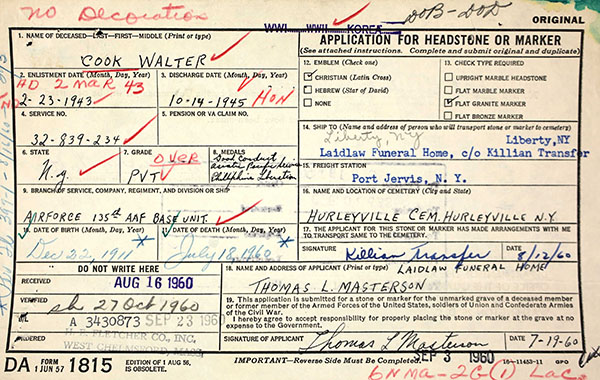 NO Decoration
WWI WWII KOREA
DOB-DOD
ORIGINAL
1. NAME OF DECEASED-LAST-FIRST-MIDDLE (Print or type)
COOK WALTER
APPLICATION FOR HEADSTONE OR MARKER
(See attached instructions. Complete and submit original and duplicate)
2. ENLISTMENT DATE (Month, Day, Year)
AD 2 MAR 43
2-23-1943
3. DISCHARGE DATE (Month, Day, Year)
10-14-1945 HON
12. EMBLEM (Check one)
CHRISTIAN (Latin Cross)
HEBREW (Star of David)
NONE
13. CHECK TYPE REQUIRED
UPRIGHT MARBLE HEADSTONE
FLAT MARBLE MARKER
FLAT GRANITE MARKER
FLAT BRONZE MARKER
4. SERVICE NO.
32-839-234
5. PENSION OR VA CLAIM NO.
14. SHIP TO (Name and address of person who will transport stone or marker to cemetery)
Liberty, NY
Liberty, NY
Laidlaw Funeral Home, c/o Killian Transfer
6. STATE
N.Y.
7. GRADE
OVER
PVT
8. MEDALS
Good Conduct
15. FREIGHT STATION
Port Jervis, N. Y.
9. BRANCH OF SERVICE, COMPANY, REGIMENT, AND DIVISION OR SHIP
AIRFORCE 135th AAF BASE UNIT.
16. NAME AND LOCATION OF CEMETERY (City and State)
HURLEYVILLE CEM. HURLEYVILLE N.Y.
10. DATE OF BIRTH (Month, Day, Year)
Dec 22, 1911
11. DATE OF DEATH (Month, Day, Year)
July 18, 1960
17. THE APPLICANT FOR THIS STONE OR MARKER HAS MADE ARRANGEMENTS WITH ME TO TRANSPORT SAME TO THE CEMETERY.
SIGNATURE
Killian Transfer
DATE
8/12/60
DO NOT WRITE HERE
RECEIVED
AUG 16 1960
VERIFIED
27 Oct 1960
A 3430873 SEP 23 1960
ORDERED
H. E. FLETCHER CO., INC.
WEST CHELMSFORD, MASS.
18. NAME AND ADDRESS OF APPLICANT (Print or type)
LAIDLAW FUNERAL HOME
THOMAS L. MASTERSON
19. This application is submitted for a stone or marker for the unmarked grave of a deceased member or former member of the Armed Forces of the United States, soldiers of Union and Confederate Armies of the Civil War.
I hereby agree to accept responsibility for properly placing the stone or marker at the grave at no expense to the Government.
SIGNATURE OF APPLICANT
Thomas L Masterson
DATE
7-19-60
DA FORM 1 JUN 57 1815
EDITION OF 1 AUG 56, IS OBSOLETE.
IMPORTANT-Reverse Side Must be Completed.
SEP 3 1960